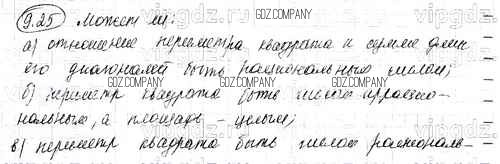 9.25 Может ли:
а) отношение периметра квадрата к сумме длин
его диагоналей быть рациональным числом;
б) периметр квадрата быть числом иррацио-
нальным, а площадь – целым;
в) периметр квадрата быть числом рациональ-
GDZ.COMPANY
GDZ.COMPANY GDZ.COMPANY GDZ.COMPANY
GDZ.COMPANY
vipgdz.ru